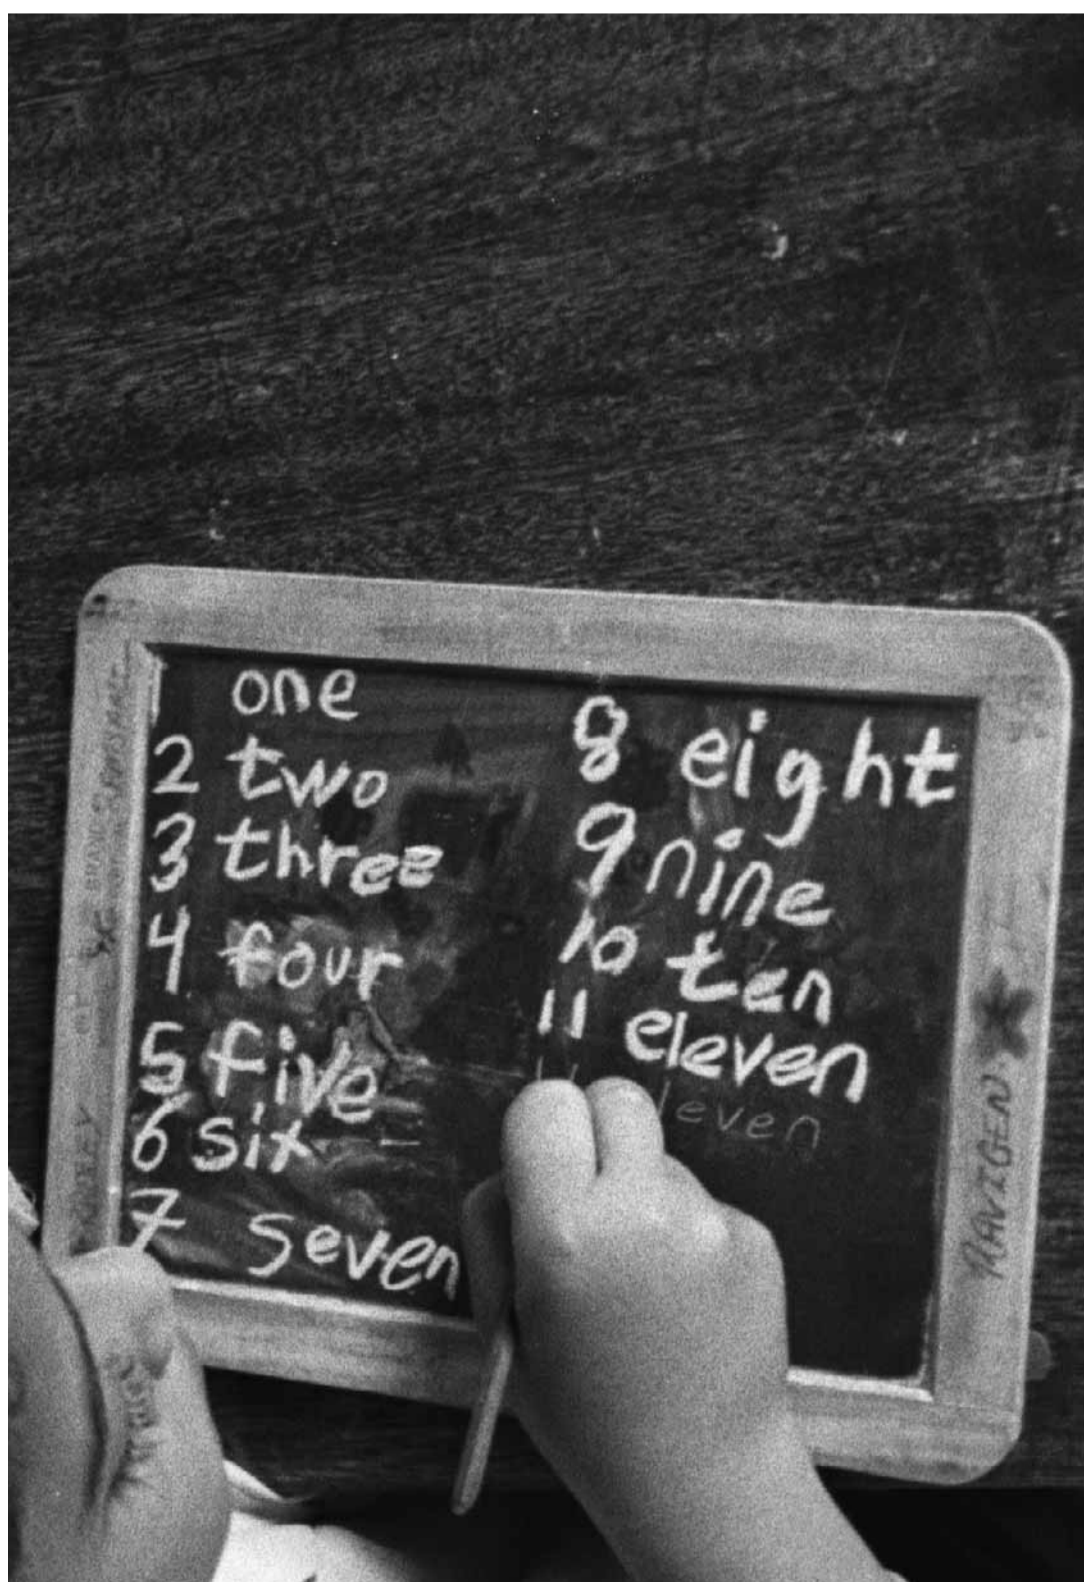 1 one
2 two
3 three
4 four
5 five
6 six
7 seven
8 eight
9 nine
10 ten
11 eleven
leven